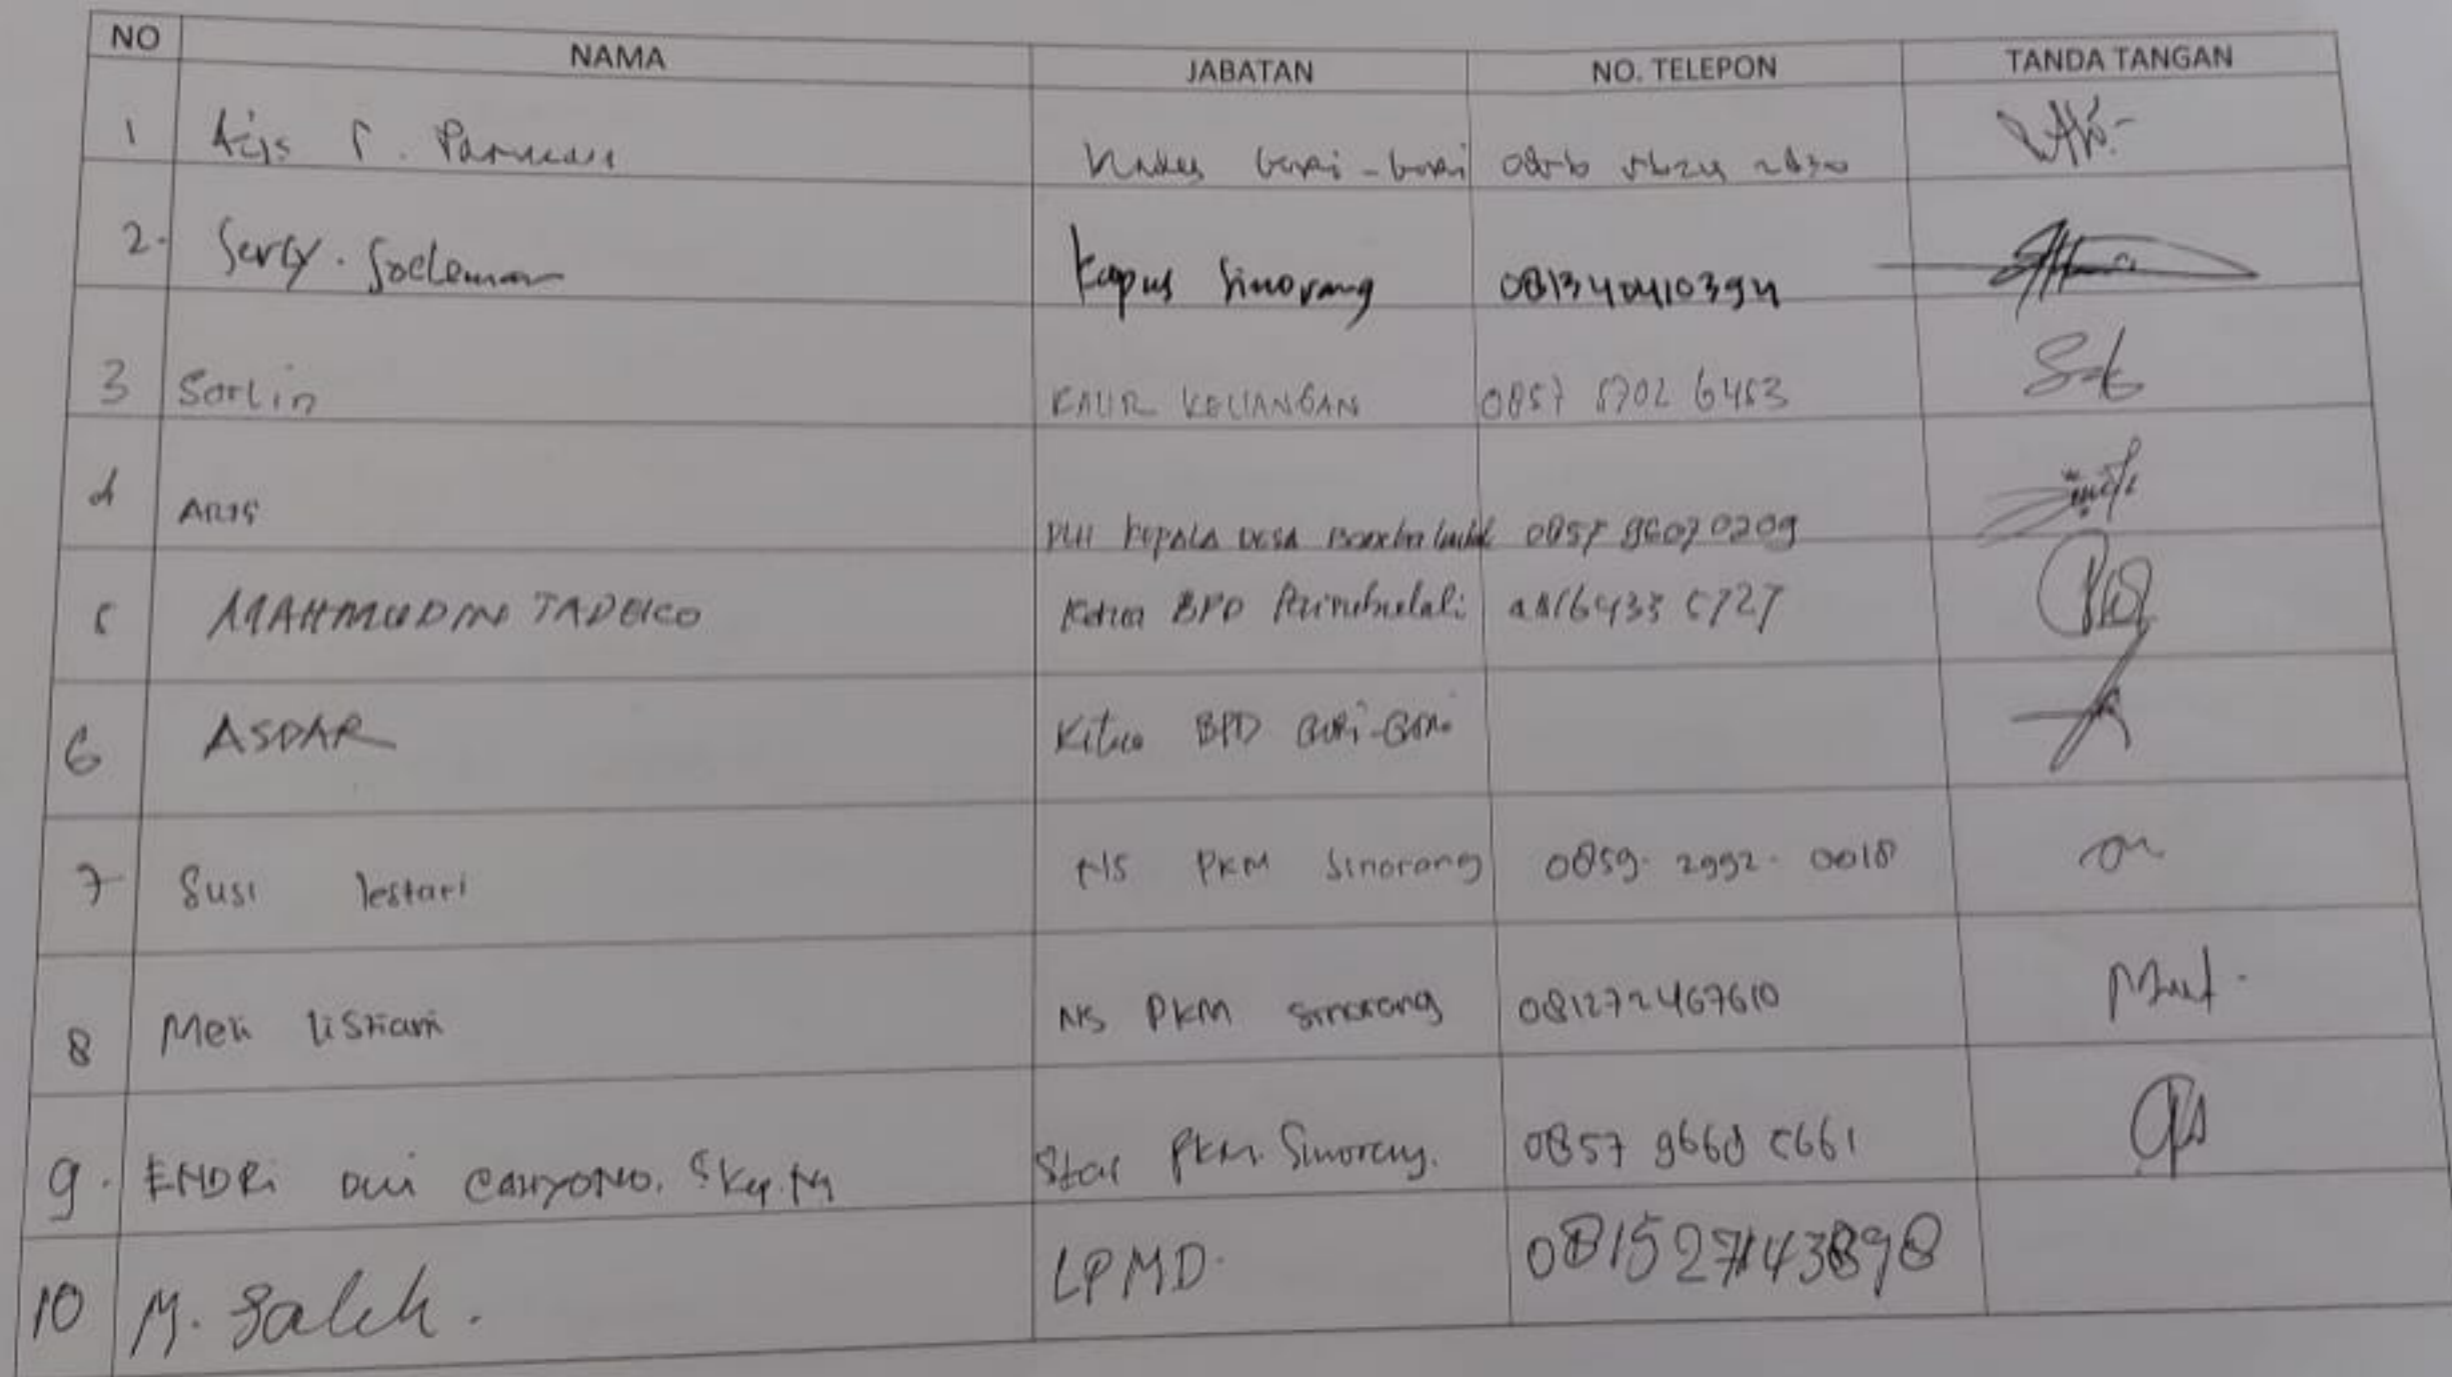 NO NAMA JABATAN NO. TELEPON TANDA TANGAN
1 Azis P.
2. Serly. Soeleman Kapus Sinorang 081340410394
3 Sarlin KAUR KEUANGAN 0857 5702 6453
4 ARIS PLH KEPALA DESA 0857 96070209
5 MAHMUDIN TADEKO Ketua BPD
6 ASDAR Ketua BPD GORI-GORI
7 Susi lestari NS PKM Sinorang 0859. 2992. 0018
8 Meli listiani NS PKM sinorang 081272467610
9. ENDRi DWi CAHYONO. S.Kep.Ns Staf PKM. Sinorang. 0857 9660 5661
10 M. Saleh. LPMD. 081527143898